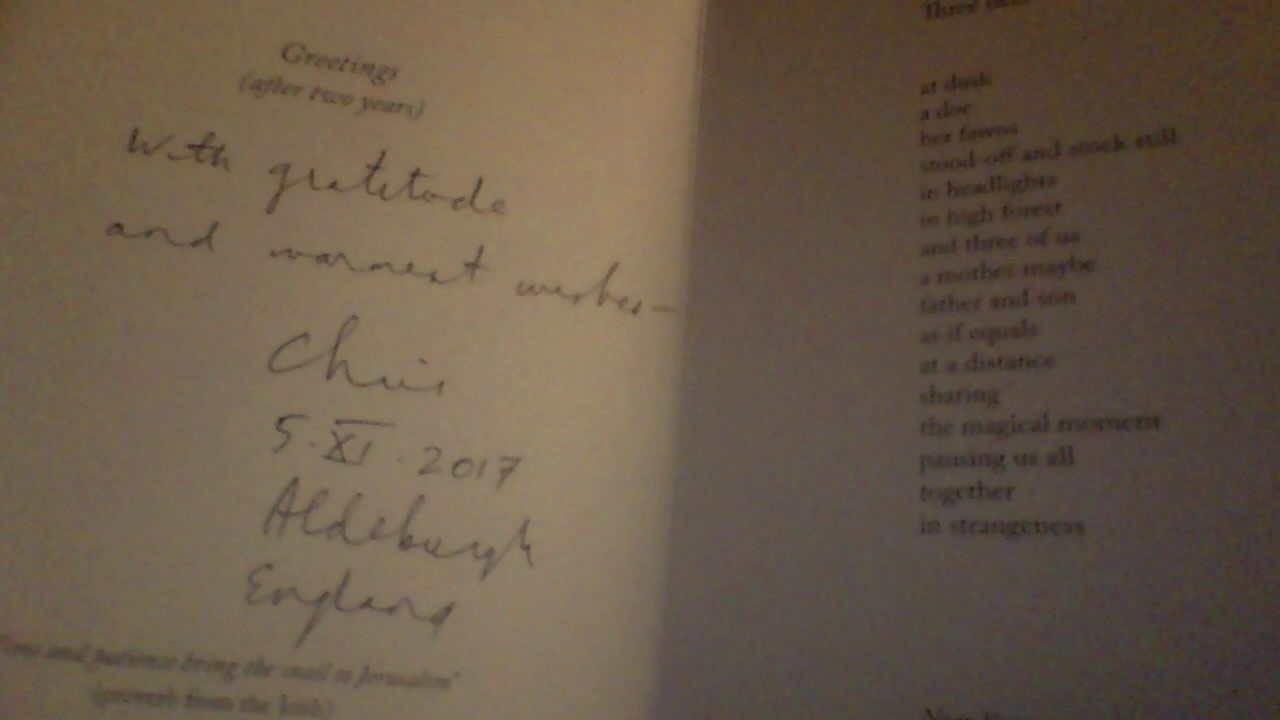 Greetings
(after two years)
With gratitude
and warmest wishes—
Chris
5.XI.2017
Aldeburgh
England
time and patience bring the snail to Jerusalem"
(proverb from the Irish)
Three
at dusk
a doe
her fawns
stood-off and stock still
in headlights
in high forest
and three of us
a mother maybe
father and son
as if equals
at a distance
sharing
the magical moment
pausing us all
together
in strangeness